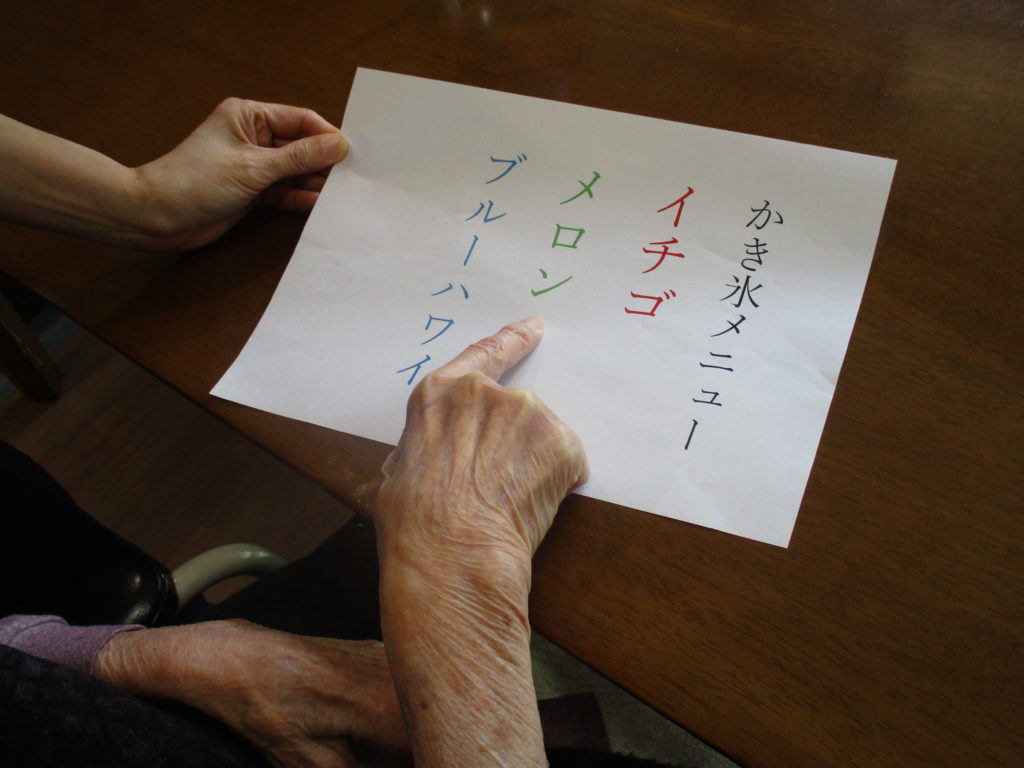 かき氷メニュー
イチゴ
メロン
ブルーハワイ